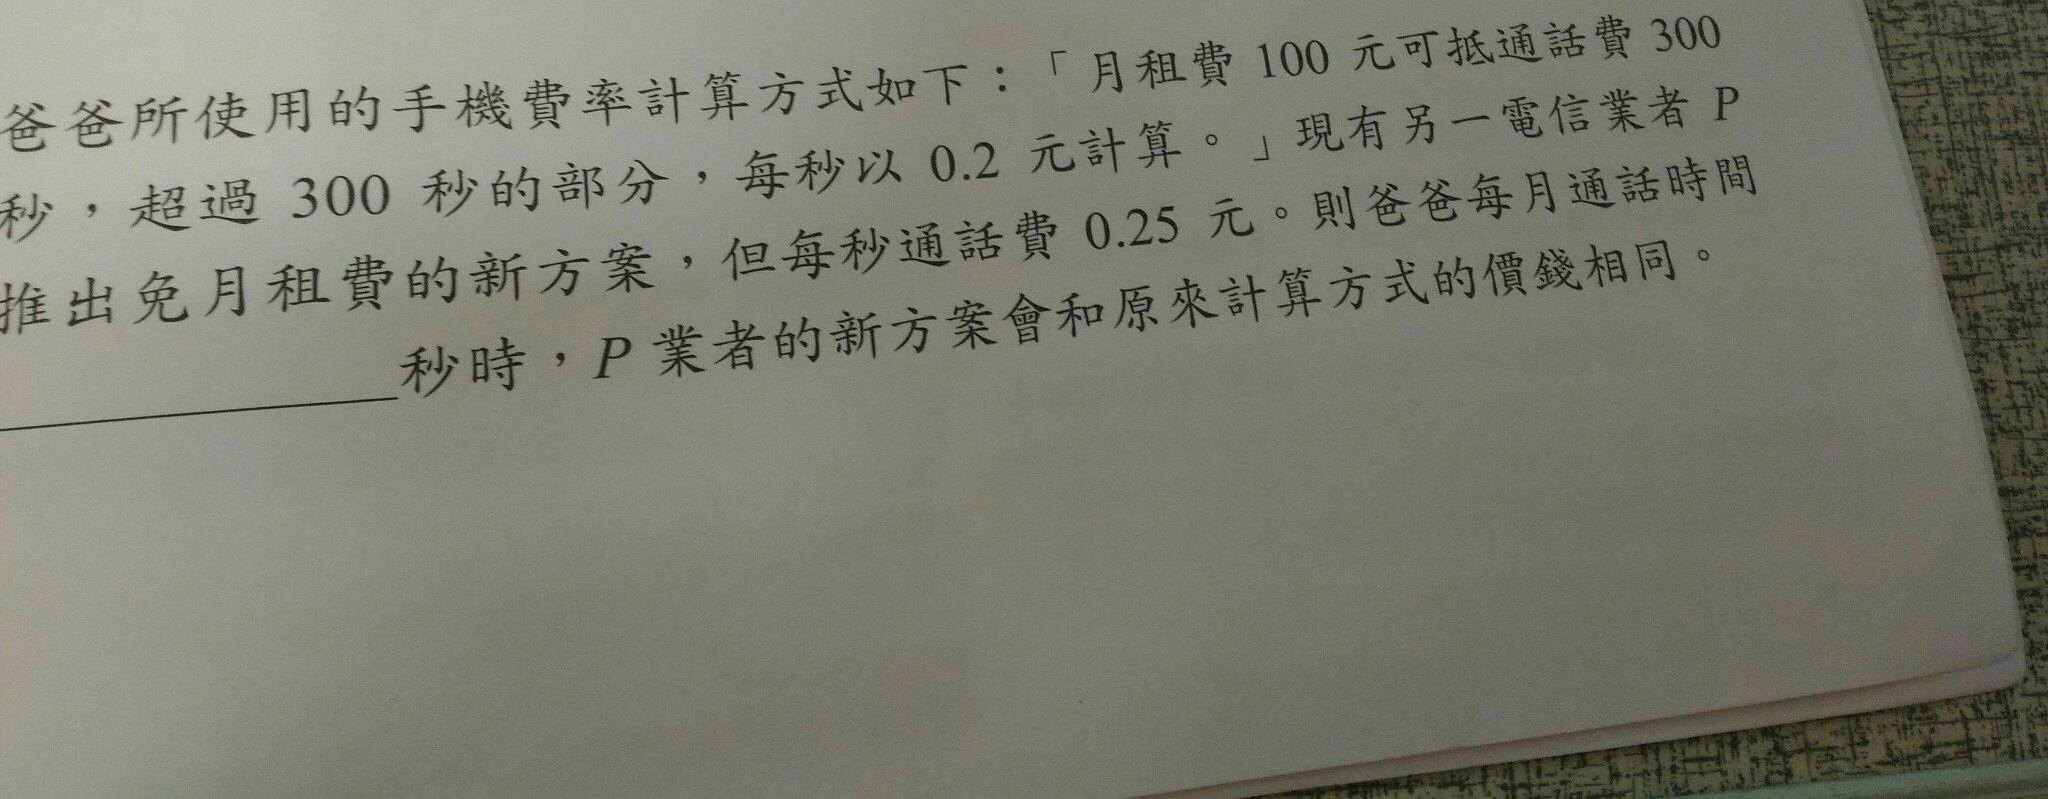 爸爸所使用的手機費率計算方式如下：「月租費 100 元可抵通話費 300
秒，超過 300 秒的部分，每秒以 0.2 元計算。」現有另一電信業者 P
推出免月租費的新方案，但每秒通話費 0.25 元。則爸爸每月通話時間
秒時，P 業者的新方案會和原來計算方式的價錢相同。